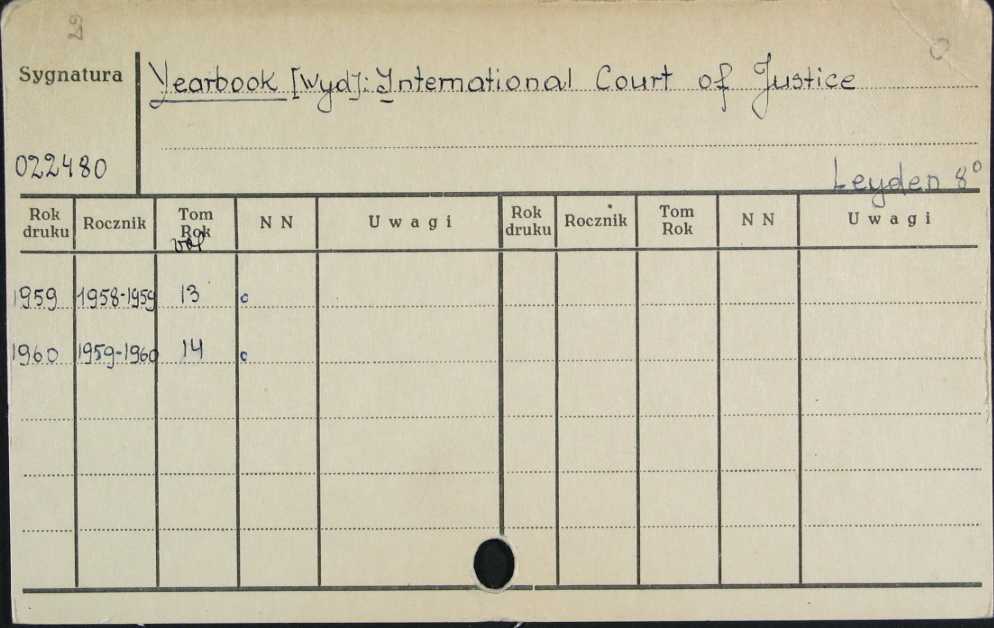 Sygnatura
Yearbook [Wyd]: International Court of Justice
022480
Leyden 8°
Rok druku Rocznik Tom Rok vol N N Uwagi Rok druku Rocznik Tom Rok N N Uwagi
1959 1958-1959 13 c
1960 1959-1960 14 c